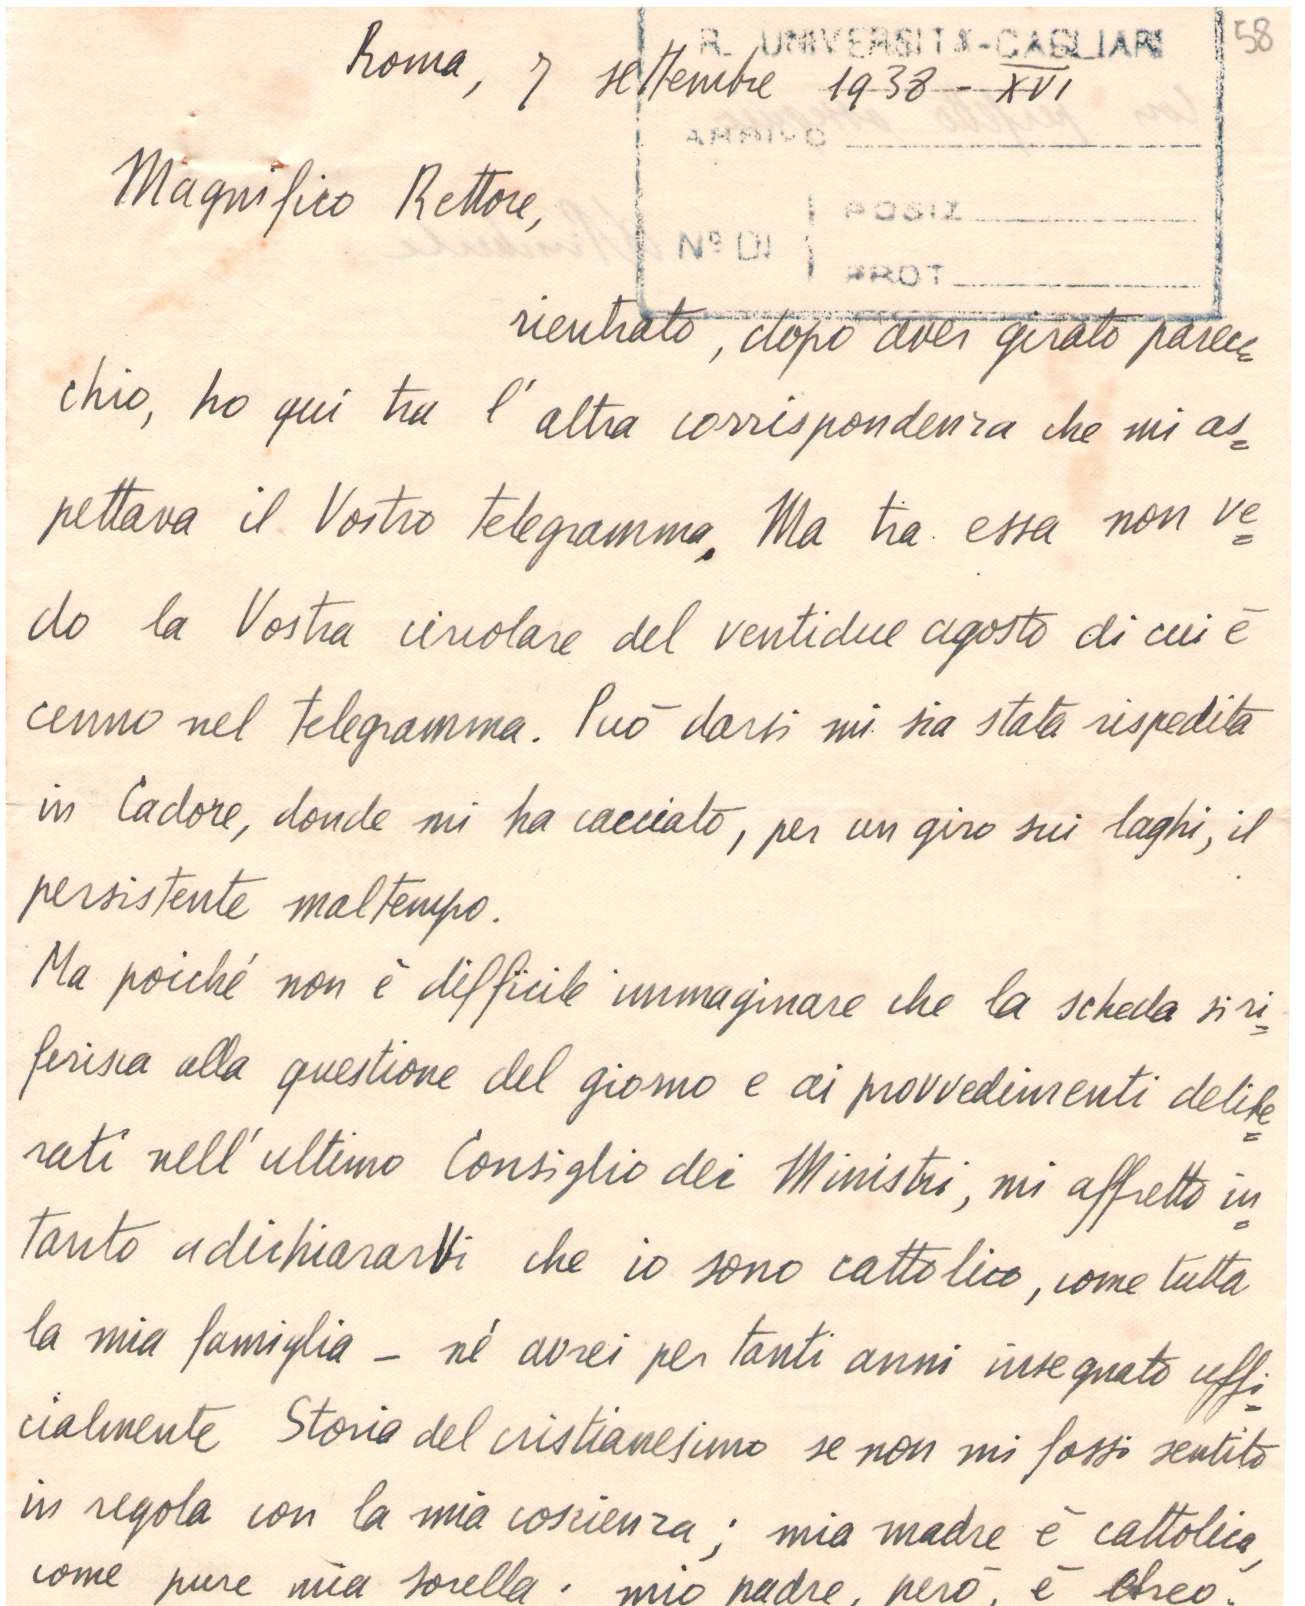 58
R. UNIVERSITÀ-CAGLIARI
Roma, 7 settembre 1938-XVI
ARRIVO
Magnifico Rettore,
POSIZ
Nº DI
PROT
rientrato, dopo aver girato parec=
chio, ho qui tra l'altra corrispondenza che mi as=
pettava il Vostro telegramma. Ma tra essa non ve=
do la Vostra circolare del ventidue agosto di cui è
cenno nel telegramma. Può darsi mi sia stata rispedita
in Cadore, donde mi ha cacciato, per un giro sui laghi, il
persistente maltempo.
Ma poiché non è difficile immaginare che la scheda si ri=
ferisca alla questione del giorno e ai provvedimenti delibe=
rati nell'ultimo Consiglio dei Ministri, mi affretto in=
tanto a dichiararVi che io sono cattolico, come tutta
la mia famiglia - né avrei per tanti anni insegnato uffi=
cialmente Storia del cristianesimo se non mi fossi sentito
in regola con la mia coscienza; mia madre è cattolica,
come pure mia sorella. mio padre, però, è ebreo.